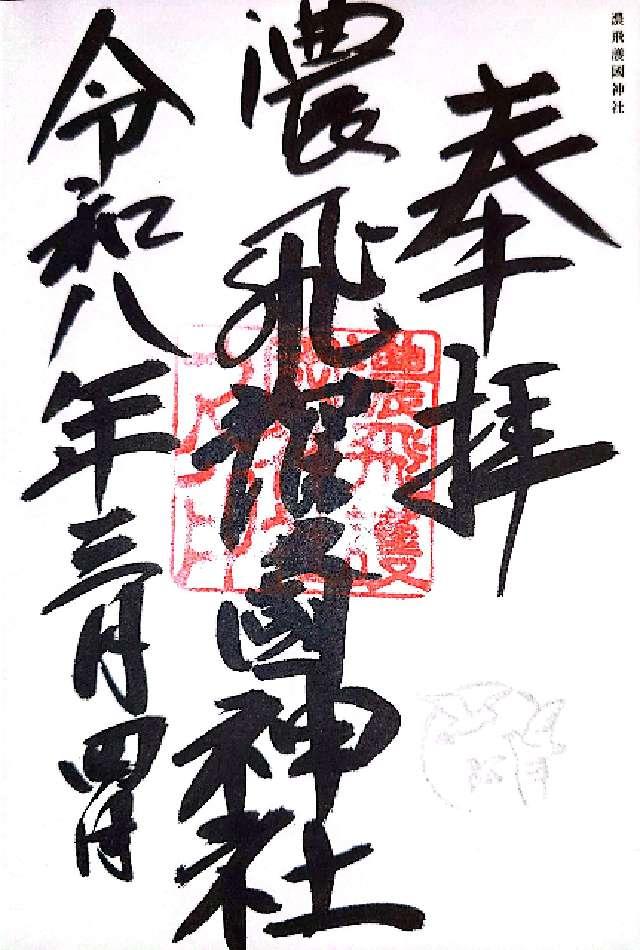 濃飛護國神社
奉拝
濃飛護國神社
令和八年三月四日
濃飛護